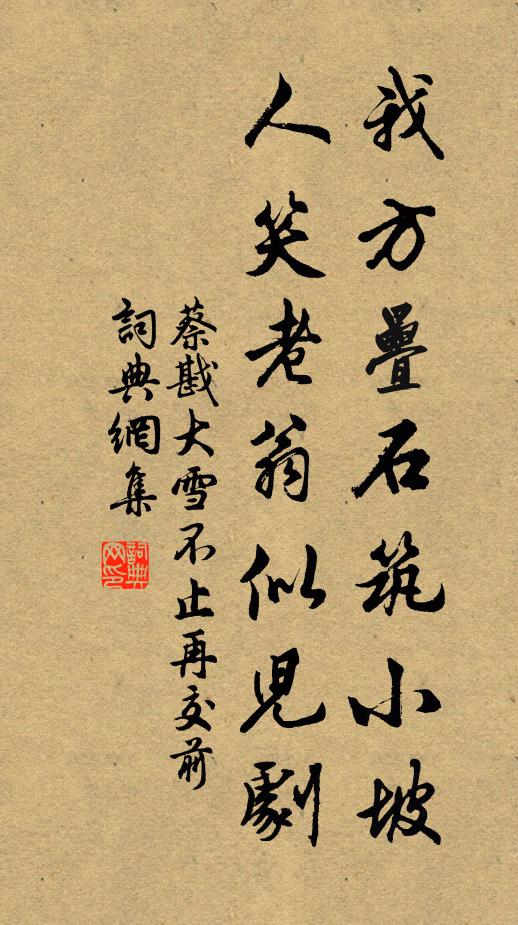 我方疊石筑小坡
人笑老翁似兒劇
蔡戡大雪不止再交前
詞典網集
詞典網印